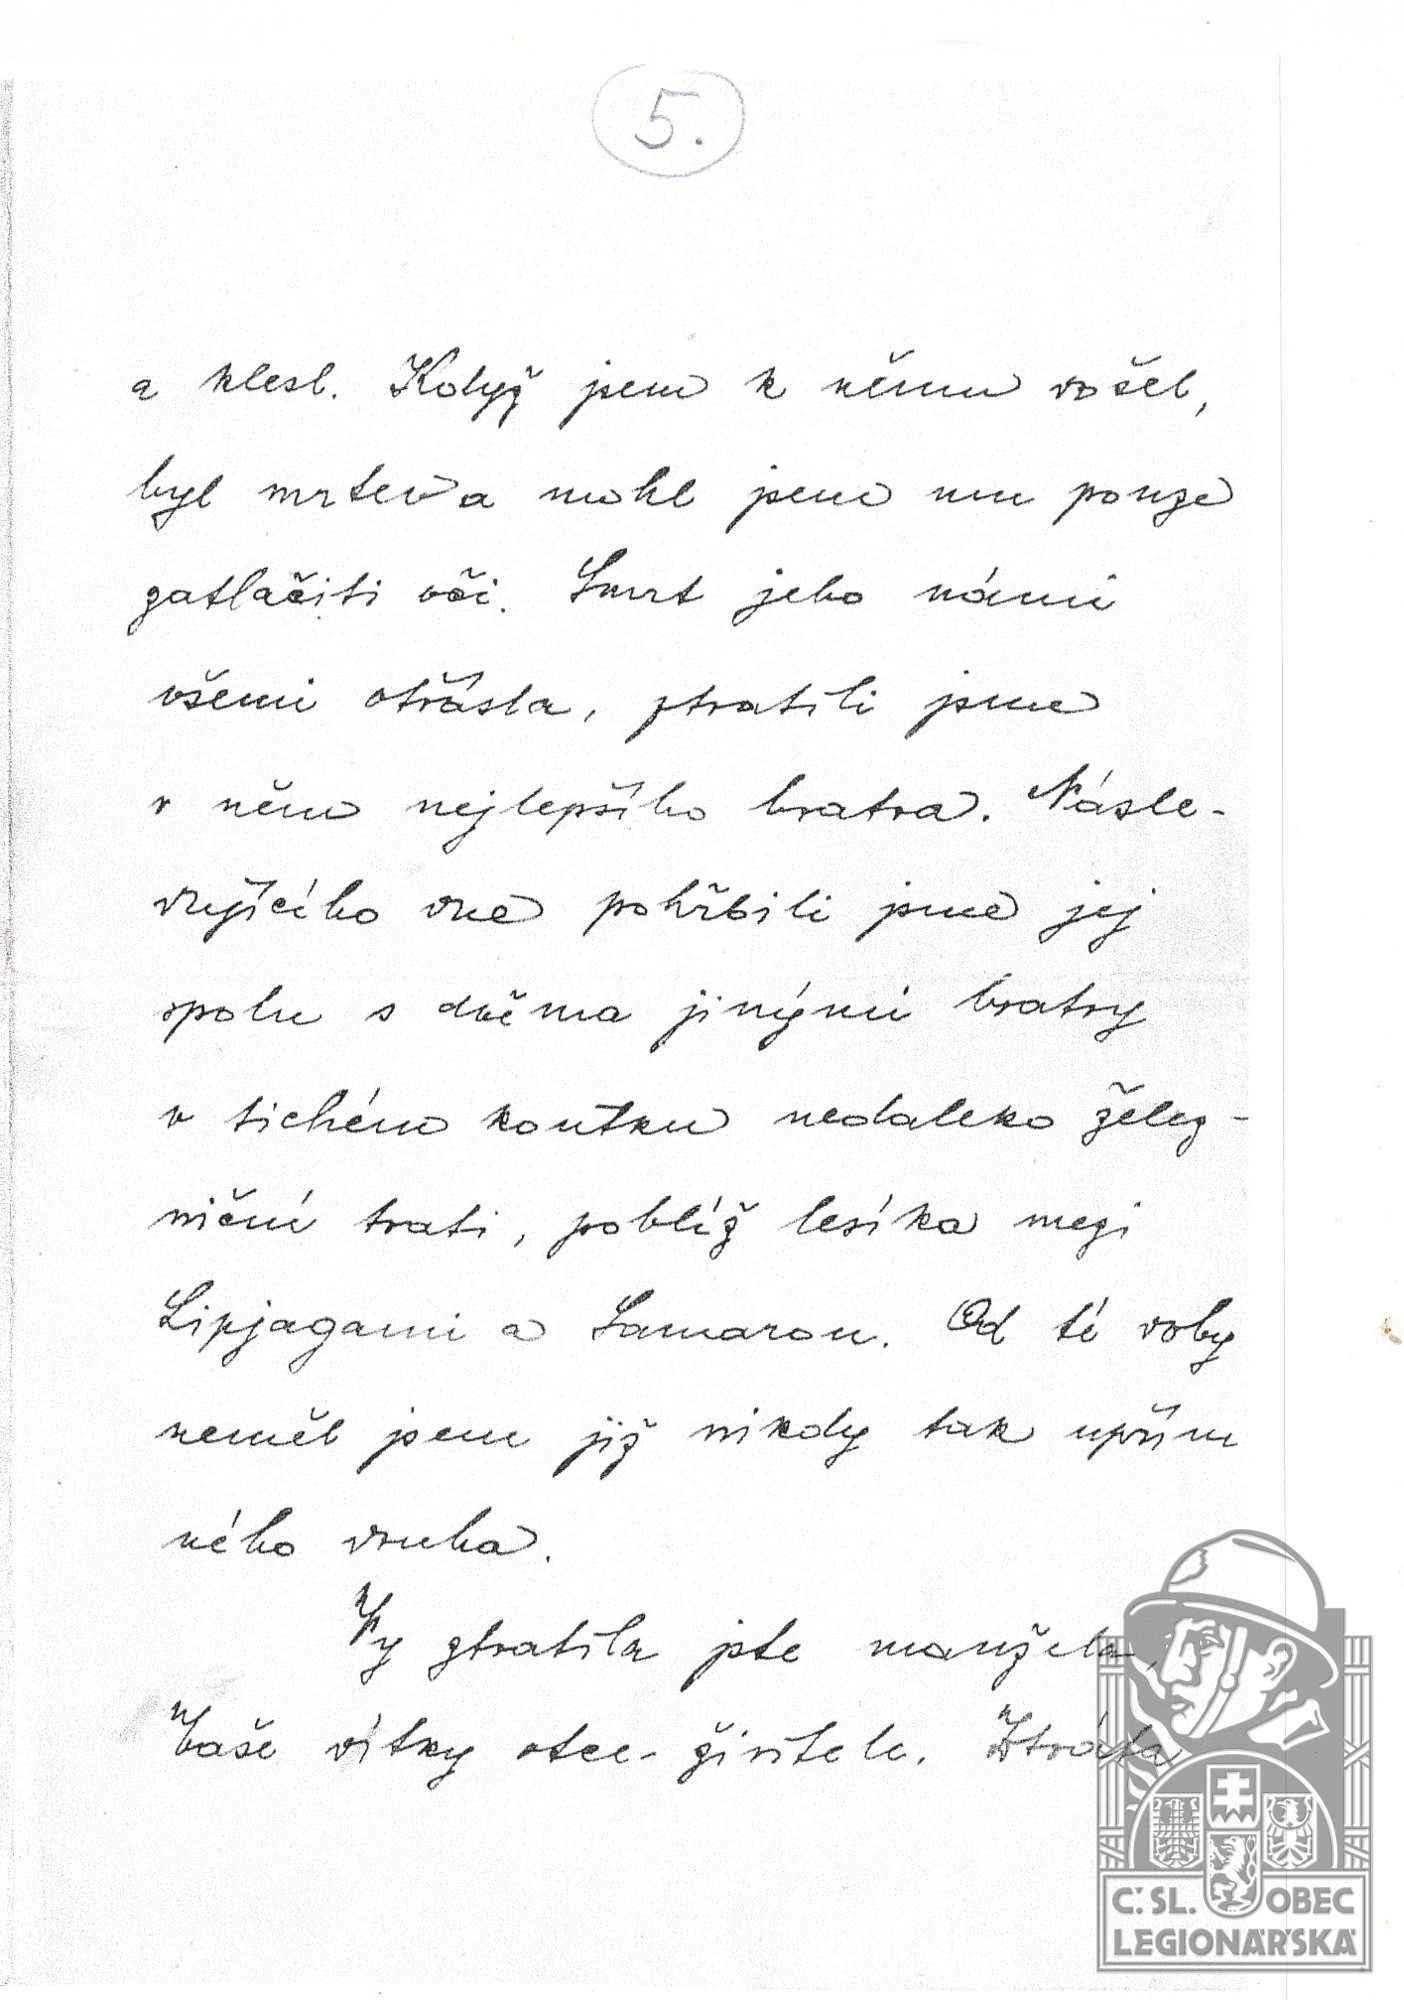 5.
a klesl. Když jsem k němu došel,
byl mrtev a mohl jsem mu pouze
zatlačiti oči. Smrt jeho námi
všemi otřásla, ztratili jsme
v něm nejlepšího bratra. Násle-
dujícího dne pohřbili jsme jej
spolu s dvěma jinými bratry
v tichém koutku nedaleko želez-
niční trati, poblíž lesíka mezi
Lipjagami a Samarou. Od té doby
neměl jsem již nikdy tak upřím
ného druha.
Vy ztratila jste manžela,
Vaše dítky otce-živitele. Ztráta
Č.SL. OBEC
LEGIONÁŘSKÁ